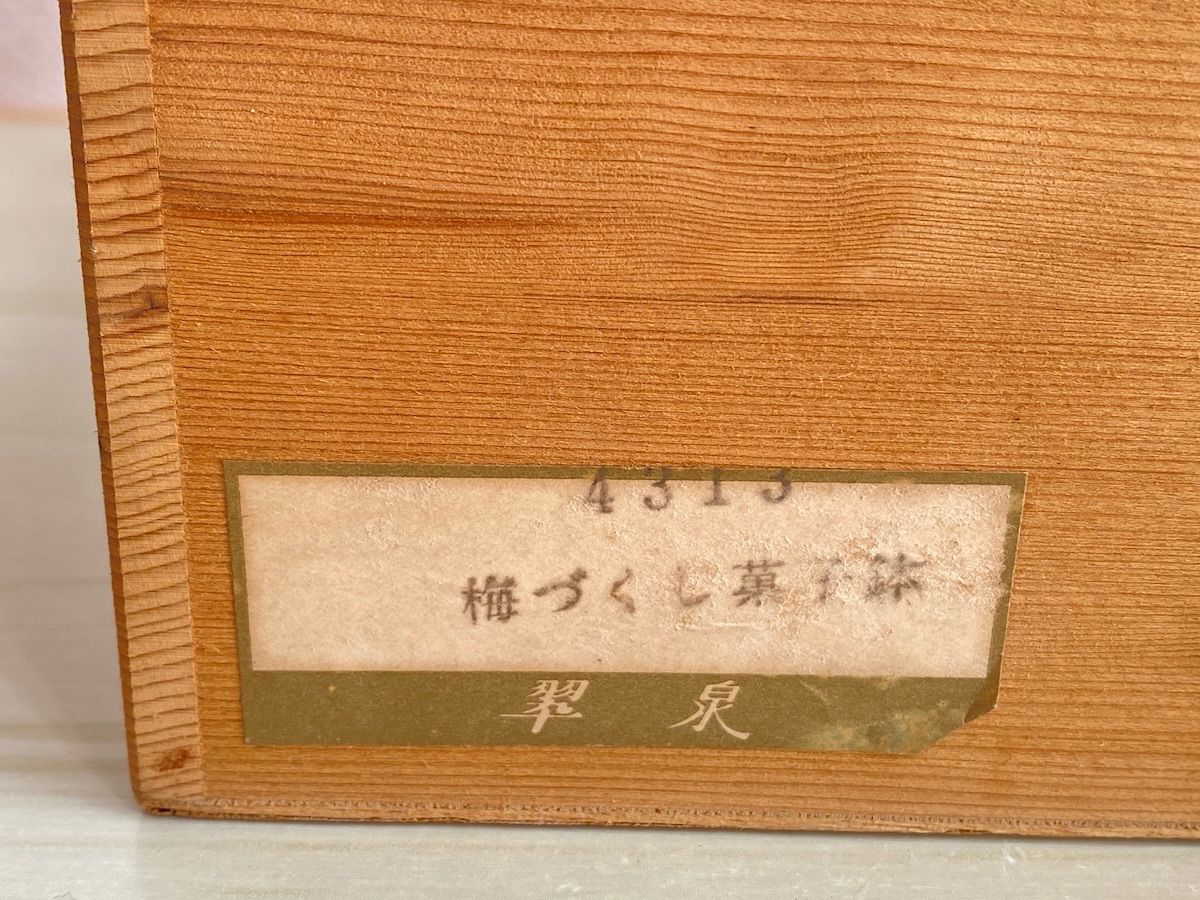 4313
梅づくし菓子鉢
翠泉